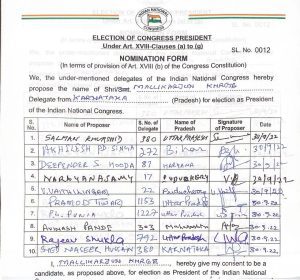 INDIAN NATIONAL CONGRESS
ELECTION OF CONGRESS PRESIDENT
Under Art. XVIII-Clauses (a) to (g)
SL. No. 0012
NOMINATION FORM
(In terms of provision of Art. XVIII (b) of the Congress Constitution)
We, the under-mentioned delegates of the Indian National Congress hereby
propose the name of Shri/Smt. MALLIKARJUN KHARGE
Delegate from KARNATAKA (Pradesh) for election as President
of the Indian National Congress.
S. No. Name of Proposer S. No. of Delegate Name of Pradesh Signature of Proposer Date
SALMAN KHURSHID 380 UTTAR PRADESH 30/9/22
2. AKHILESH PD. SINGH 272 Bihar
3. DEEPENDER S HOODA 87 HARYANA
4. NARYANASAMY 17 PUDUCHERRY
5. V. VAITHILINGAM 22
6. PRAMOD TIWARI 1153 Uttar Pradesh 30.9.22
7. P.L. PUNIA Uttar Pradesh
8. AVINASH PANDE 303 Maharashtra
9. Rajeev Shukla 792 Uttar Pradesh
10. SYED NASEER HUSSAIN 380 KARNATAKA
I, MALLIKARJUN KHARGE, hereby give my consent to be a
candidate, as proposed above, for election as President of the Indian National